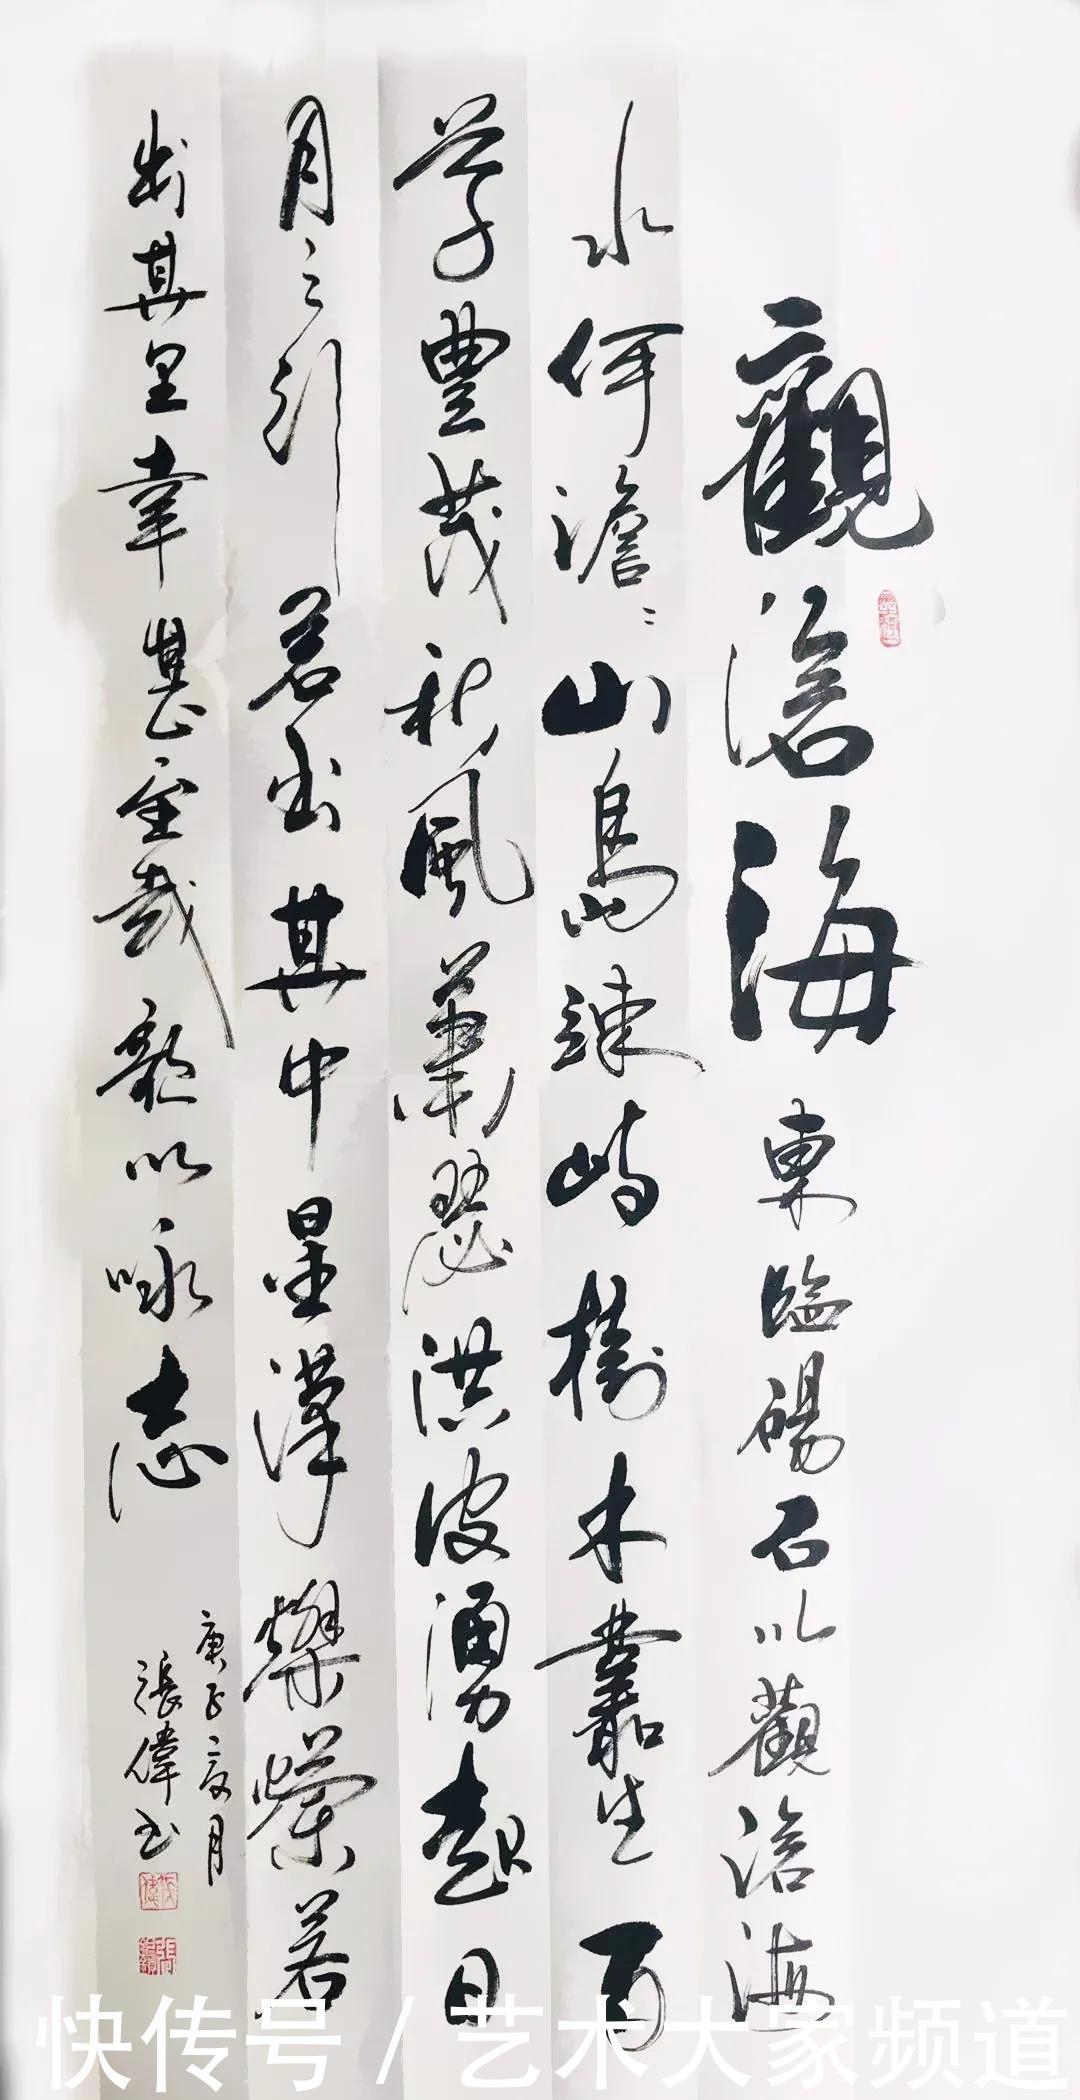 觀滄海 東臨碣石以觀滄海
水何澹〻山島竦峙樹木叢生百
草豐茂秋風蕭瑟洪波湧起日
月之行若出其中星漢燦爛若
出其里幸甚至哉歌以咏志
庚子月
張偉书
快传号 / 艺术大家频道